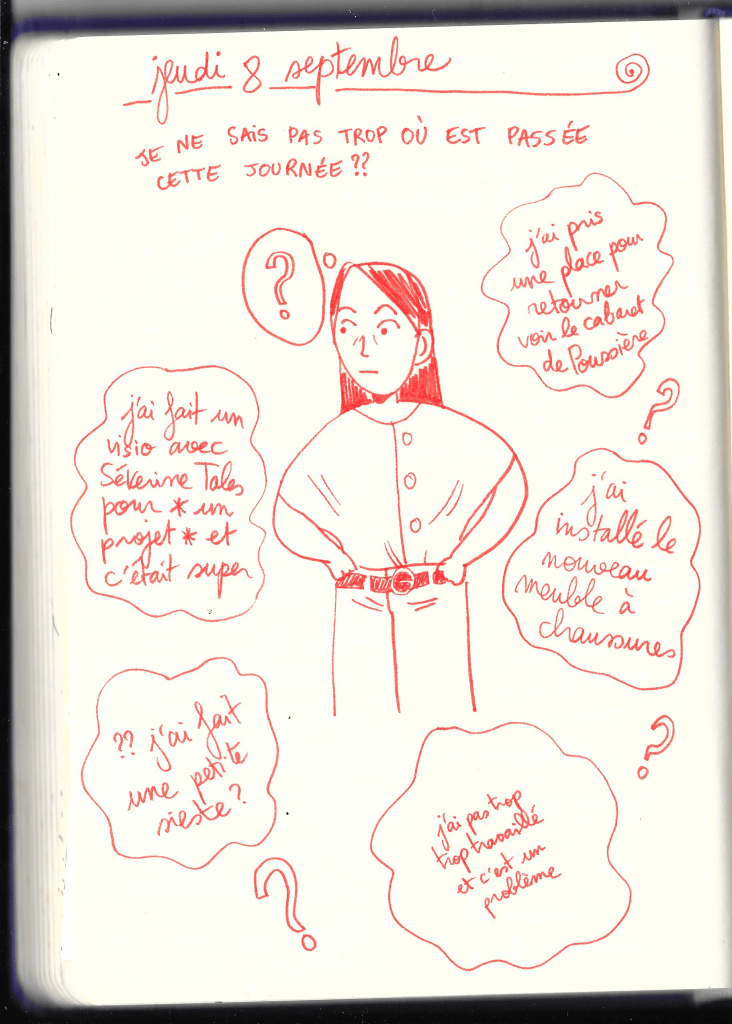 jeudi 8 septembre
JE NE SAIS PAS TROP OÙ EST PASSÉE
CETTE JOURNÉE ??
?
j'ai pris
une place pour
retourner
voir le cabaret
de Poussière
?
j'ai fait un
visio avec
Sékerine Tales
pour * un
projet * et
c'était super
j'ai
installé le
nouveau
meuble à
chaussures
?
?? j'ai fait
une petite
sieste ?
?
j'ai pas trop
trop travaillé
et c'est un
problème